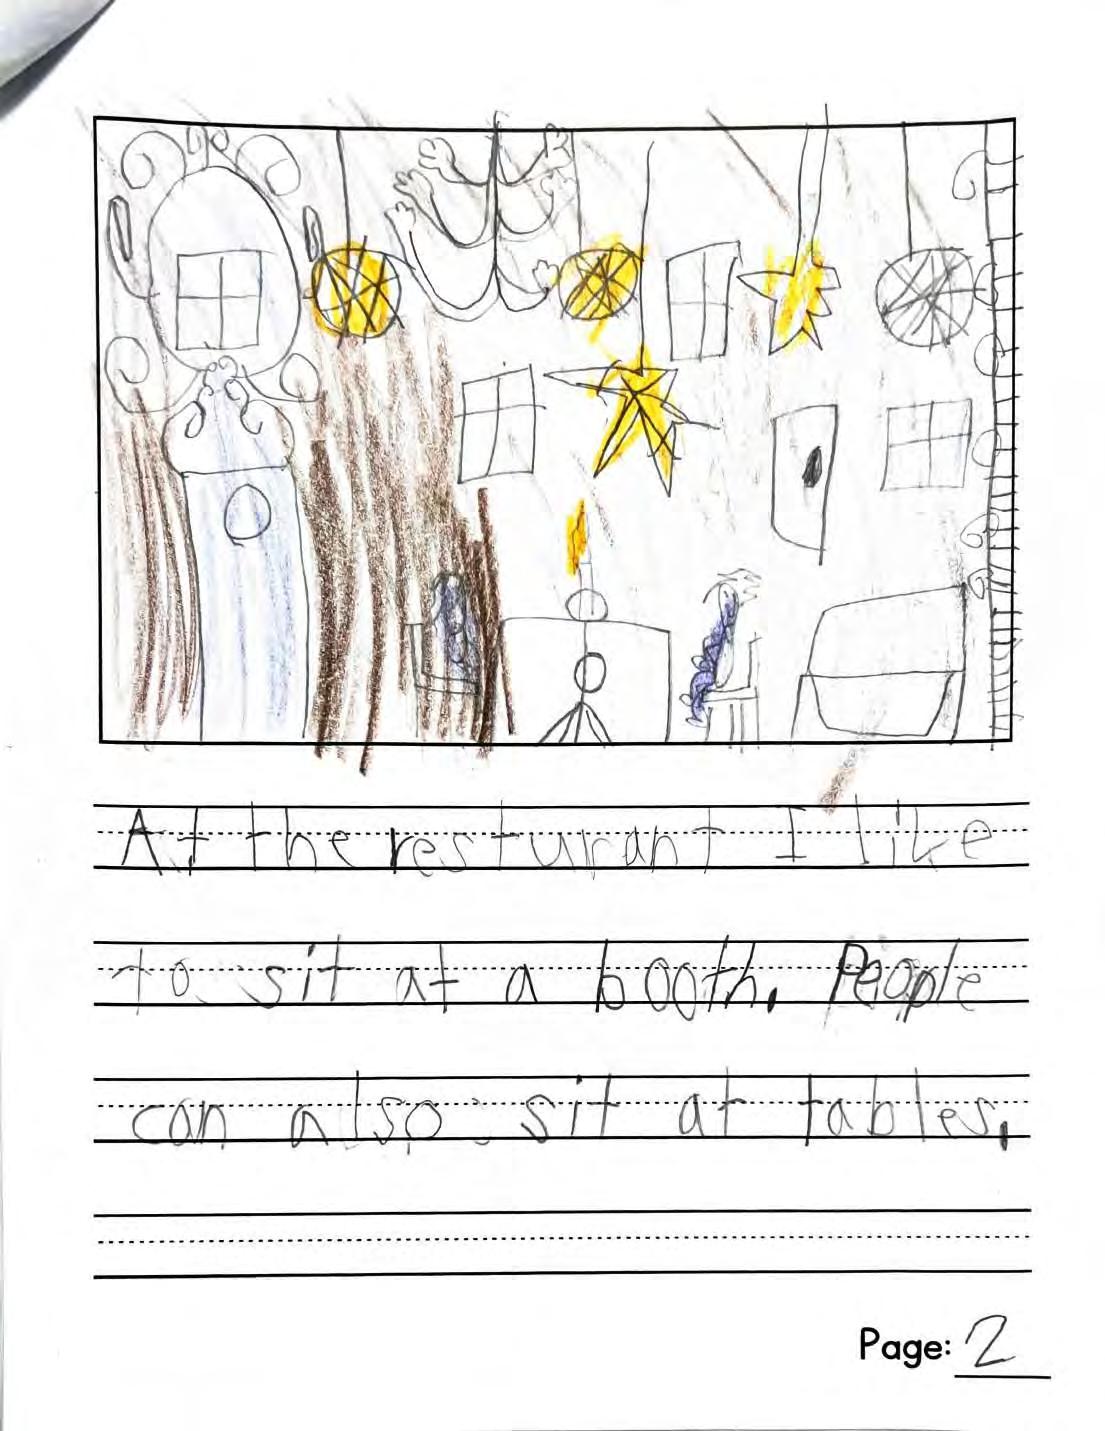 At the resturant I like
to sit at a booth. People
can also sit at tables.
Page: 2